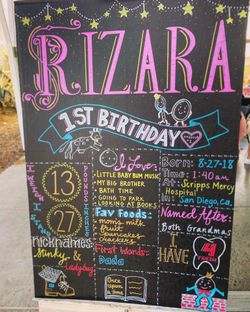 RIZARA
1ST BIRTHDAY
I WEIGH
13
POUNDS
I Love:
LITTLE BABY BUM MUSIC
MY BIG BROTHER
BATH TIME
GOING TO PARK
LOOKING AT BOOKS
27
INCHES
Fav Foods:
mom's milk
fruit
pancakes
crackers
NICKNAMES
Stinky &
Ladybug
First Words:
Dada
Once
Upon
a time
Born: 8-27-18
Time: 1:40am
At: Scripps Mercy
Hospital
in San Diego, CA
Named After:
Both Grandmas
I
HAVE
4
TEETH